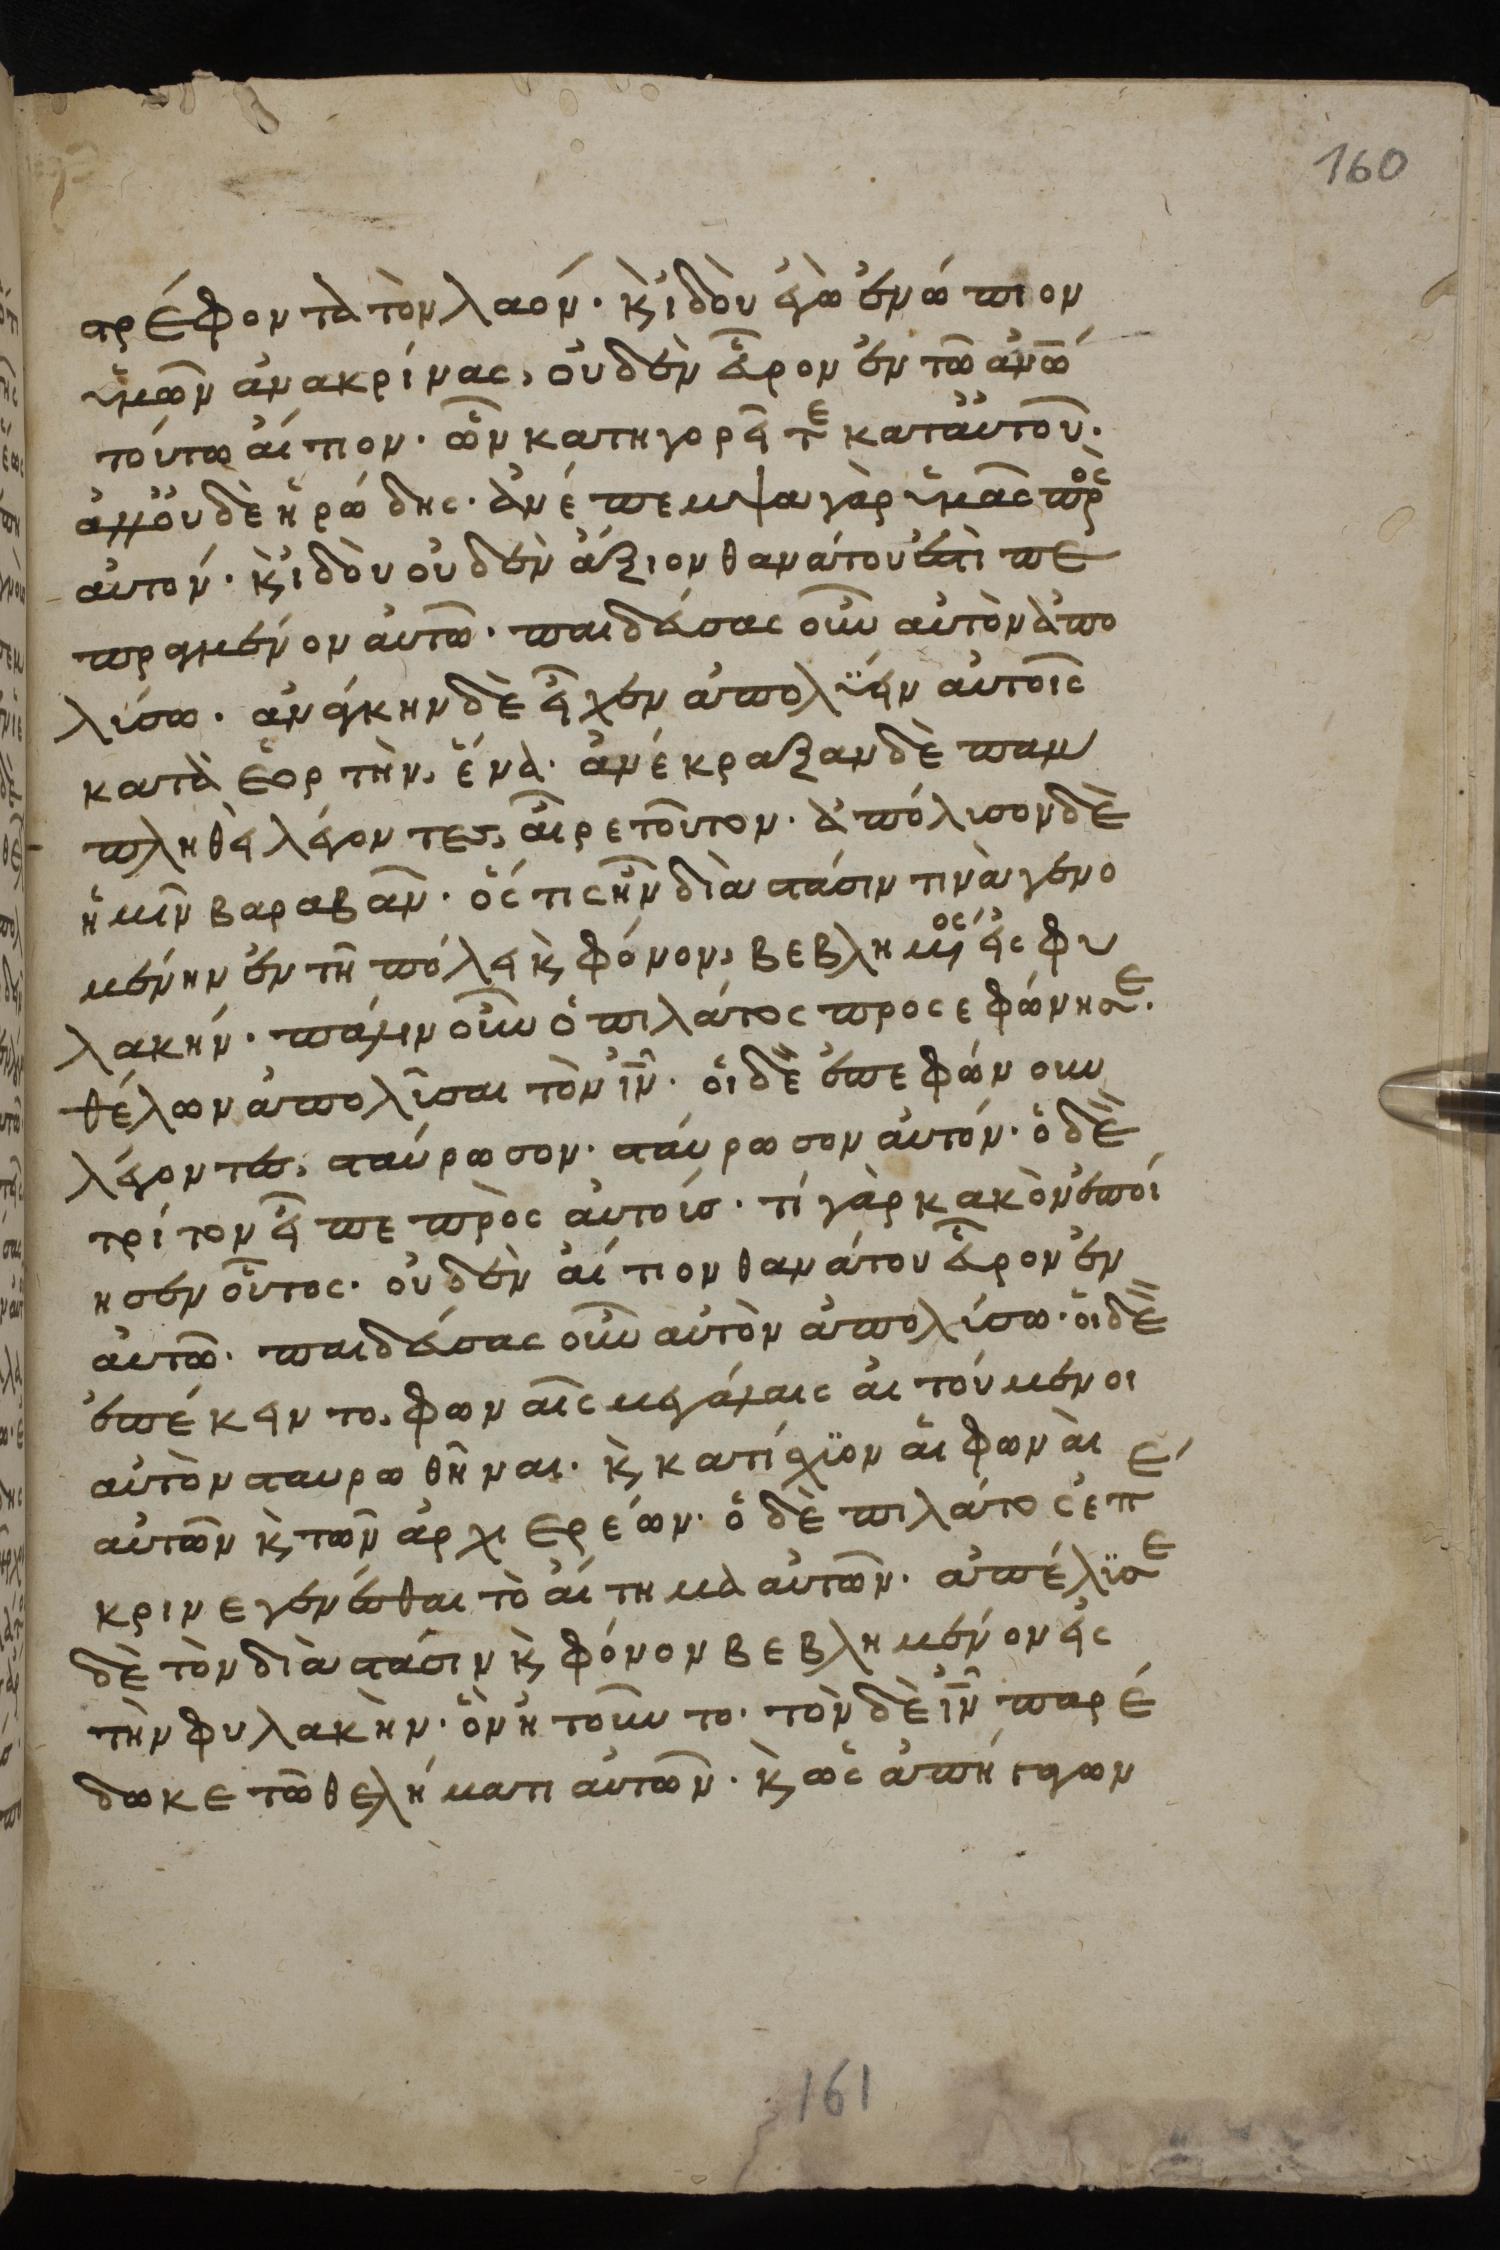 160
στρέφοντα τὸν λαόν· κ̀ ἰδοὺ ἐγὼ ἐνώπιον
ὑμῶν ἀνακρίνας, οὐδὲν εὗρον ἐν τῶ ἀνῶ
τούτω αἴτιον· ὧν κατηγορεῖτε κατ' αὐτοῦ·
ἀλλ' οὐδὲ ἡρώδης· ἀνέπεμψα γὰρ ὑμᾶς πρὸς
αὐτόν· κ̀ ἰδοὺ οὐδὲν ἄξιον θανάτου ἐστὶ πε
πραγμένον αὐτῶ· παιδεύσας οὖν αὐτὸν ἀπο
λύσω· ἀνάγκην δὲ εἶχεν ἀπολύειν αὐτοῖς
κατὰ ἑορτὴν, ἕνα· ἀνέκραξαν δὲ παμ
πληθεὶ λέγοντες, αἶρε τοῦτον· ἀπόλυσον δὲ
ἡμῖν βαραβᾶν· ὅς τις ἦν διὰ στάσιν τινὰ γενο
μένην ἐν τῆ πόλει κ̀ φόνον, βεβλημένος εἰς φυ
λακήν· πάλιν οὖν ὁ πιλάτος προσεφώνησε·
θέλων ἀπολῦσαι τὸν ἰν̄· οἱ δὲ ἐπεφώνουν
λέγοντες, σταύρωσον· σταύρωσον αὐτόν· ὁ δὲ
τρίτον εἶπε πρὸς αὐτούς· τί γὰρ κακὸν ἐποί
ησεν οὗτος· οὐδὲν αἴτιον θανάτου εὗρον ἐν
αὐτῶ· παιδεύσας οὖν αὐτὸν ἀπολύσω· οἱ δὲ
ἐπέκειντο, φωναῖς μεγάλαις αἰτούμενοι
αὐτὸν σταυρωθῆναι· κ̀ κατίσχϋον αἱ φωναὶ
αὐτῶν κ̀ τῶν ἀρχιερέων· ὁ δὲ πιλάτος ἐπέ
κρινε γενέσθαι τὸ αἴτημα αὐτῶν· ἀπέλϋσε
δὲ τὸν διὰ στάσιν κ̀ φόνον βεβλημένον εἰς
τὴν φυλακὴν· ὃν ἠτοῦντο· τὸν δὲ ἰν̄ παρέ
δωκε τῶ θελήματι αὐτῶν· κ̀ ὡς ἀπήγαγον
161